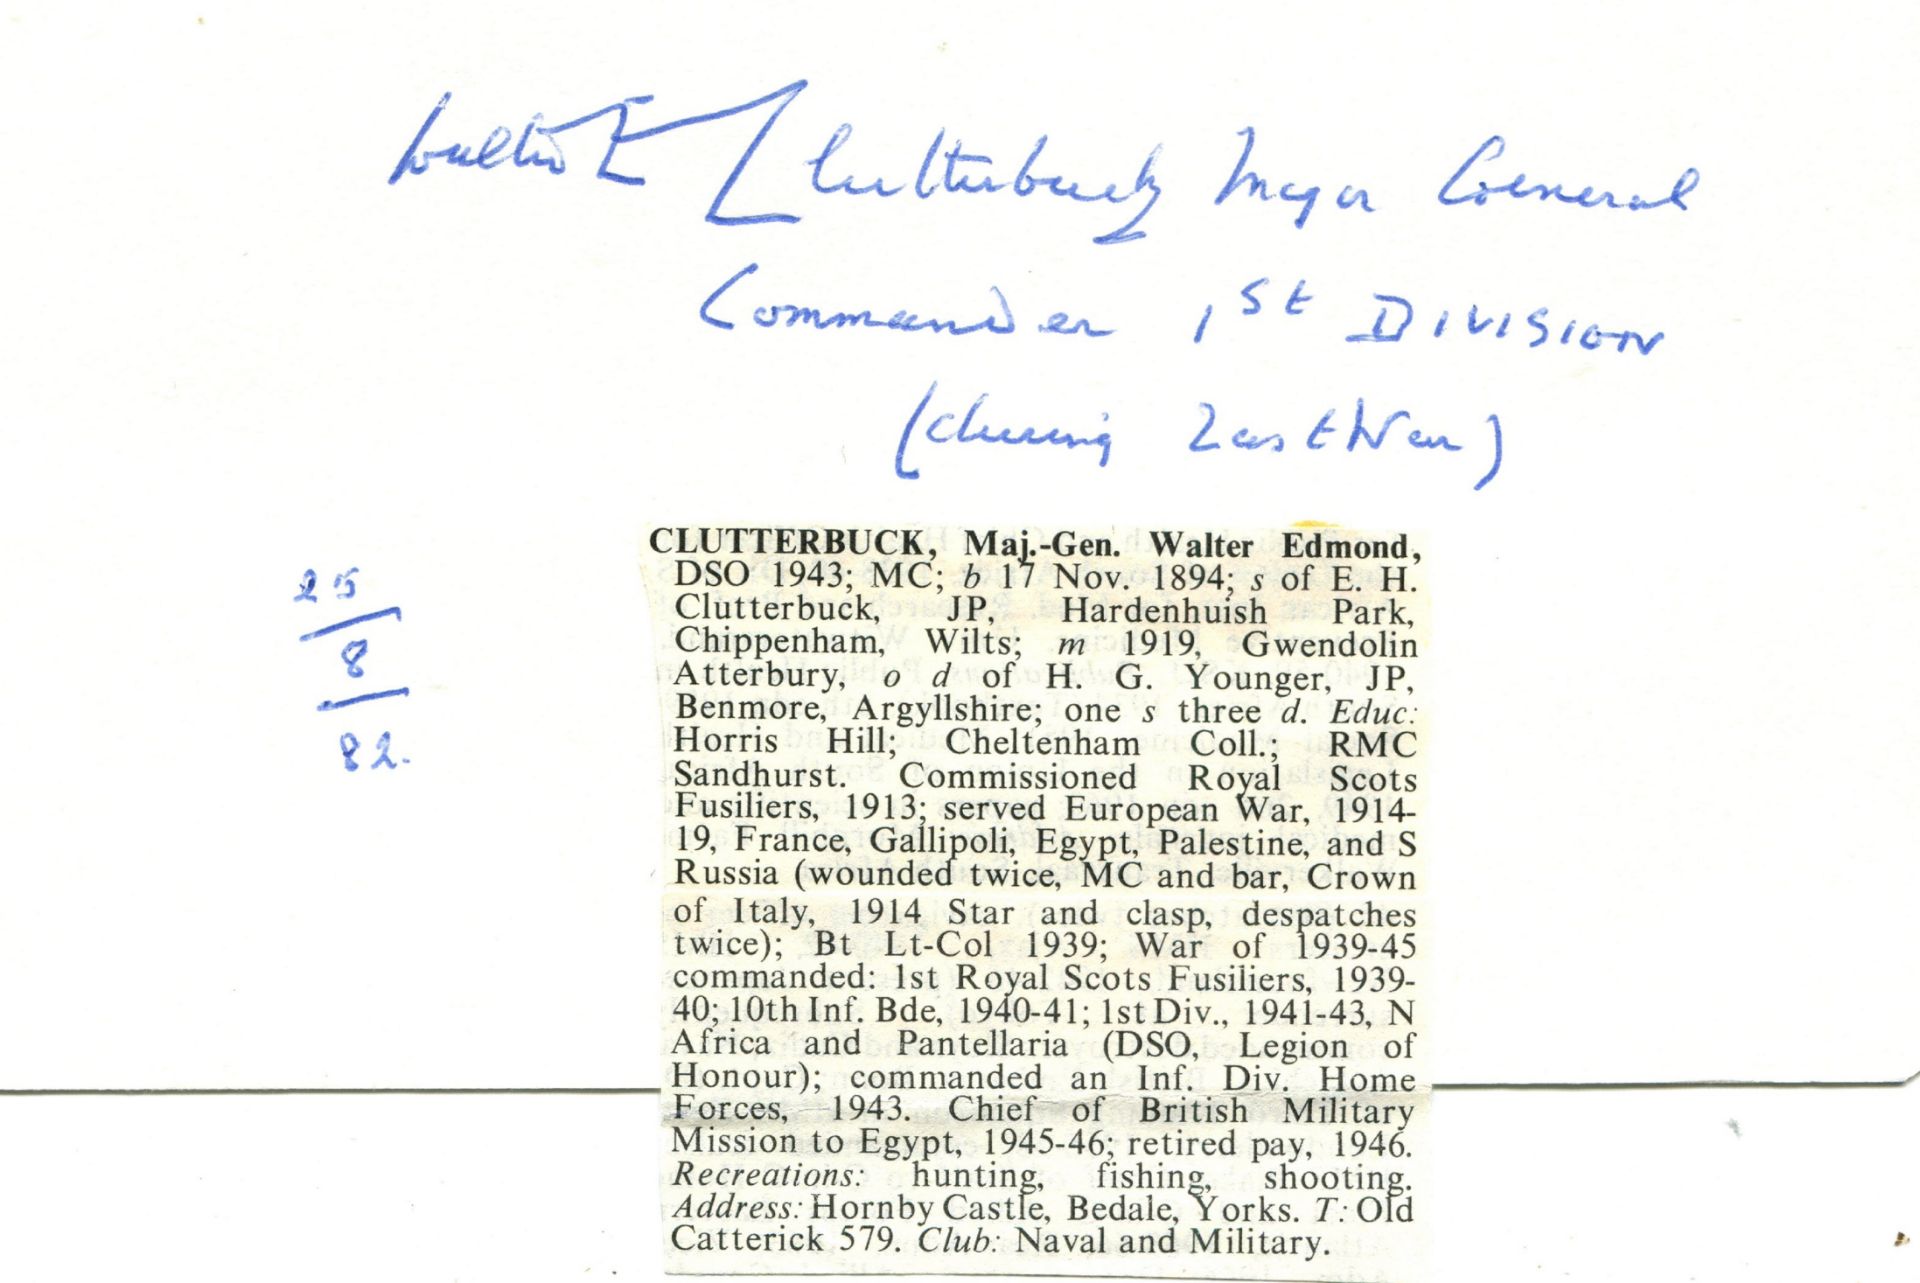 Walter E Clutterbuck Major General
Commander 1st DIVISION
(during Last War)
25
8
82.
CLUTTERBUCK, Maj.-Gen. Walter Edmond,
DSO 1943; MC; b 17 Nov. 1894; s of E. H.
Clutterbuck, JP, Hardenhuish Park,
Chippenham, Wilts; m 1919, Gwendolin
Atterbury, o d of H. G. Younger, JP,
Benmore, Argyllshire; one s three d. Educ:
Horris Hill; Cheltenham Coll.; RMC
Sandhurst. Commissioned Royal Scots
Fusiliers, 1913; served European War, 1914-
19, France, Gallipoli, Egypt, Palestine, and S
Russia (wounded twice, MC and bar, Crown
of Italy, 1914 Star and clasp, despatches
twice); Bt Lt-Col 1939; War of 1939-45
commanded: 1st Royal Scots Fusiliers, 1939-
40; 10th Inf. Bde, 1940-41; 1st Div., 1941-43, N
Africa and Pantellaria (DSO, Legion of
Honour); commanded an Inf. Div. Home
Forces, 1943. Chief of British Military
Mission to Egypt, 1945-46; retired pay, 1946.
Recreations: hunting, fishing, shooting.
Address: Hornby Castle, Bedale, Yorks. T: Old
Catterick 579. Club: Naval and Military.